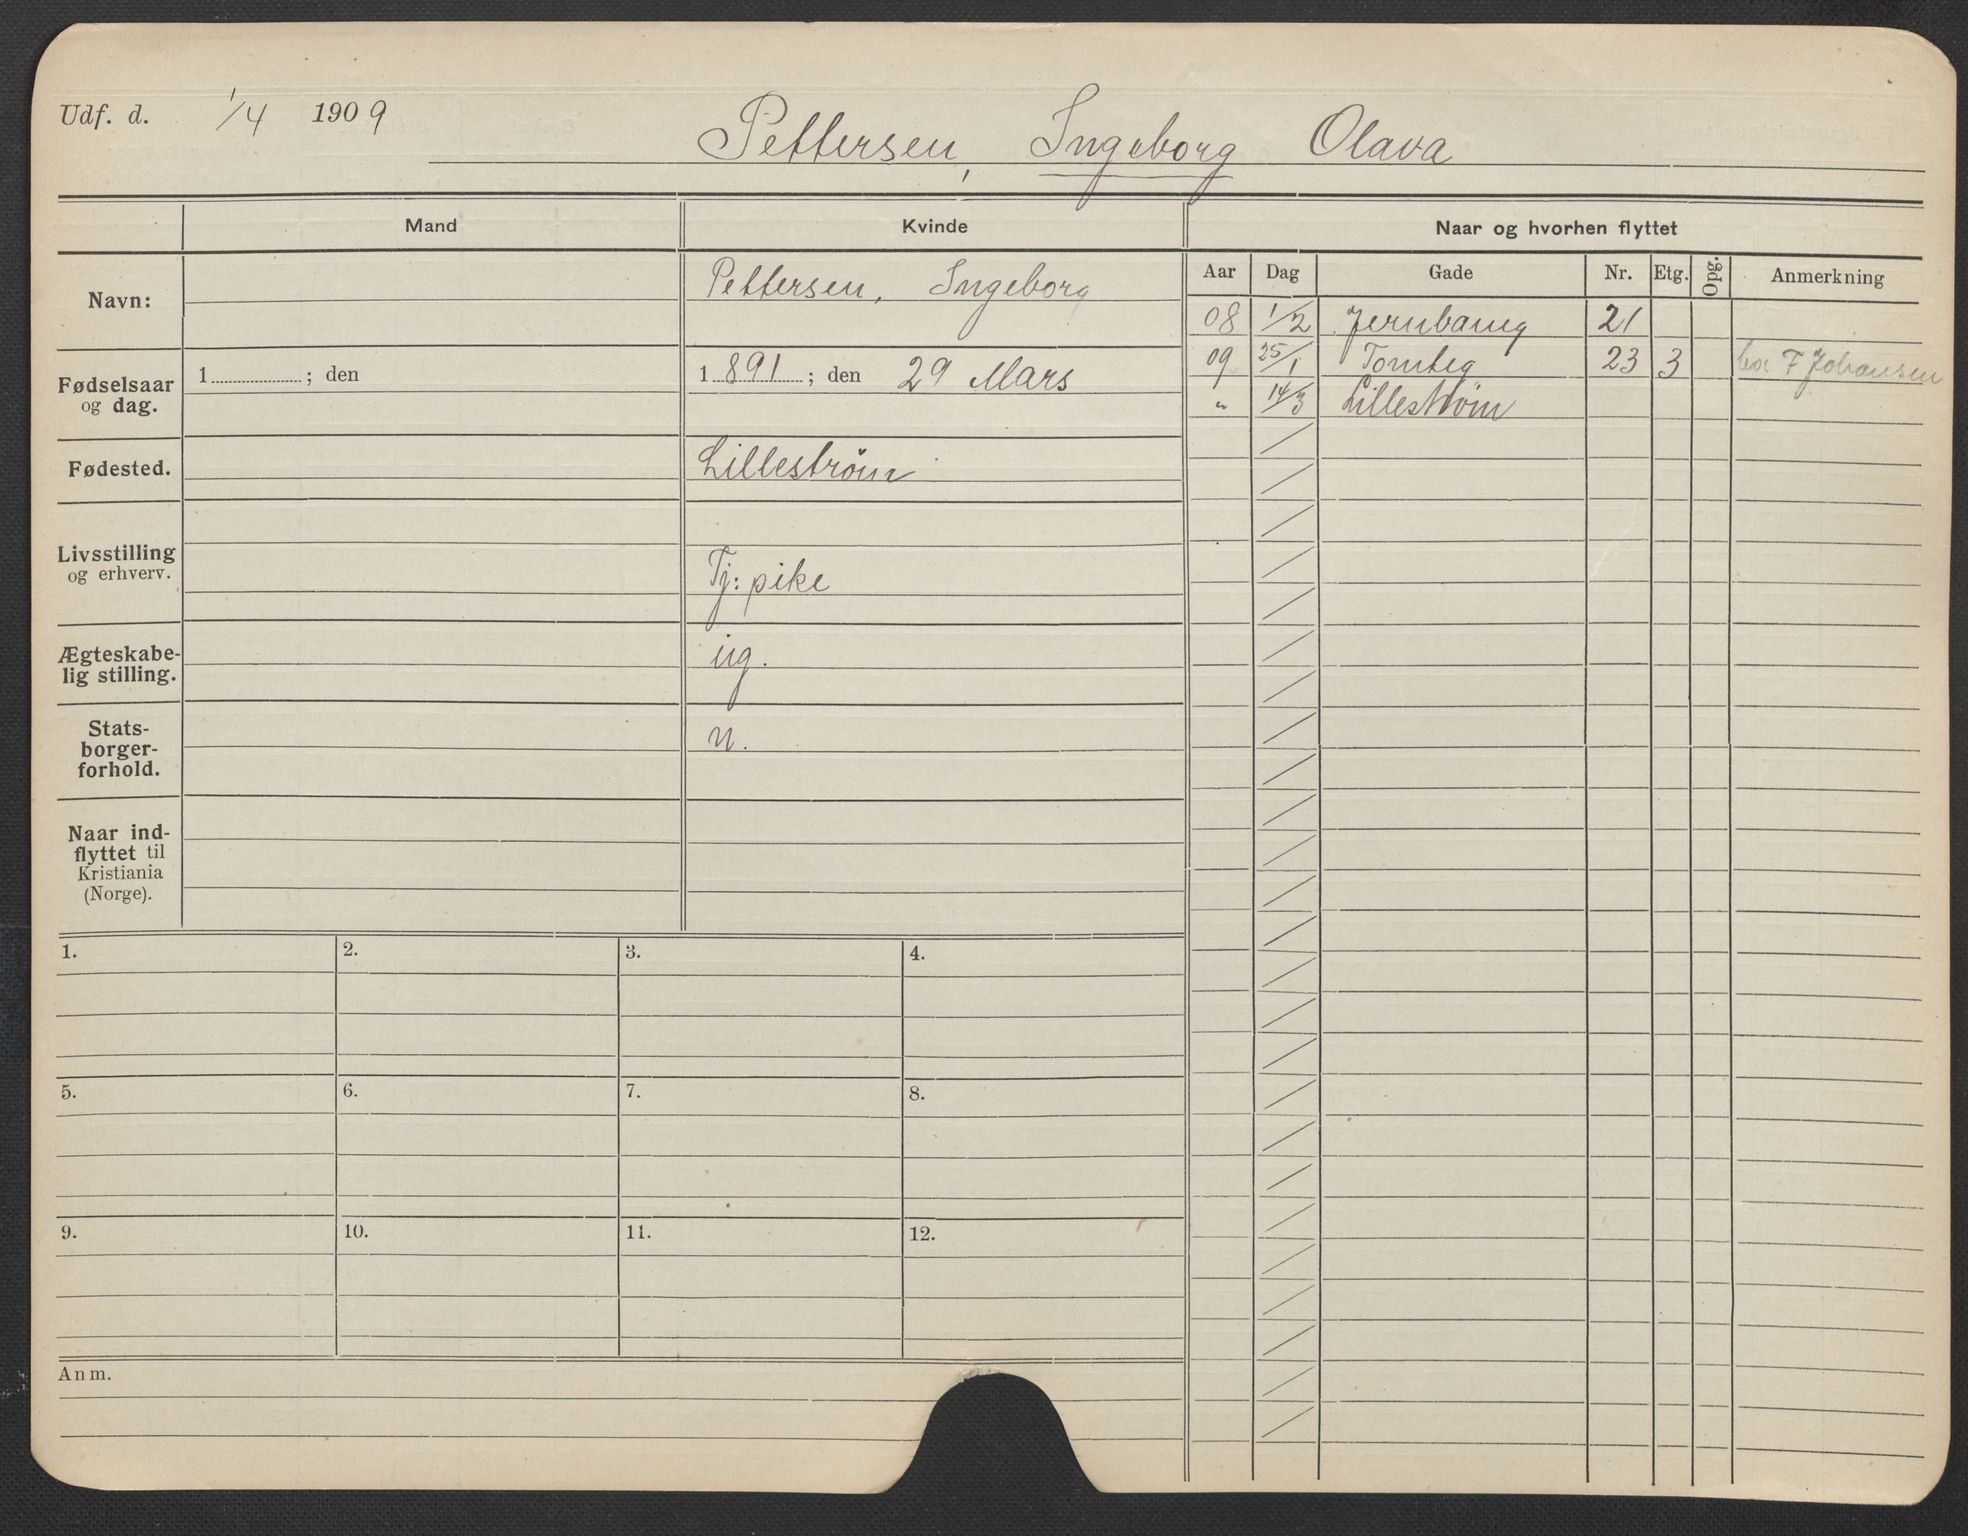 Udf. d. 1/4 1909
Pettersen, Ingeborg Olava
Mand Kvinde Naar og hvorhen flyttet
Navn: Pettersen, Ingeborg
Aar Dag Gade Nr. Etg. Opg. Anmerkning
08 1/2 Jernbaneg 21
09 25/1 Tomteg 23 3 hos F Johansen
" 14/3 Lillestrøm
Fødselsaar og dag. 1 ; den 1891 ; den 29 Mars
Fødested. Lillestrøm
Livsstilling og erhverv. Tj: pike
Ægteskabe-
lig stilling. ug.
Stats-
borger-
forhold. n.
Naar ind-
flyttet til
Kristiania
(Norge).
1. 2. 3. 4.
5. 6. 7. 8.
9. 10. 11. 12.
Anm.